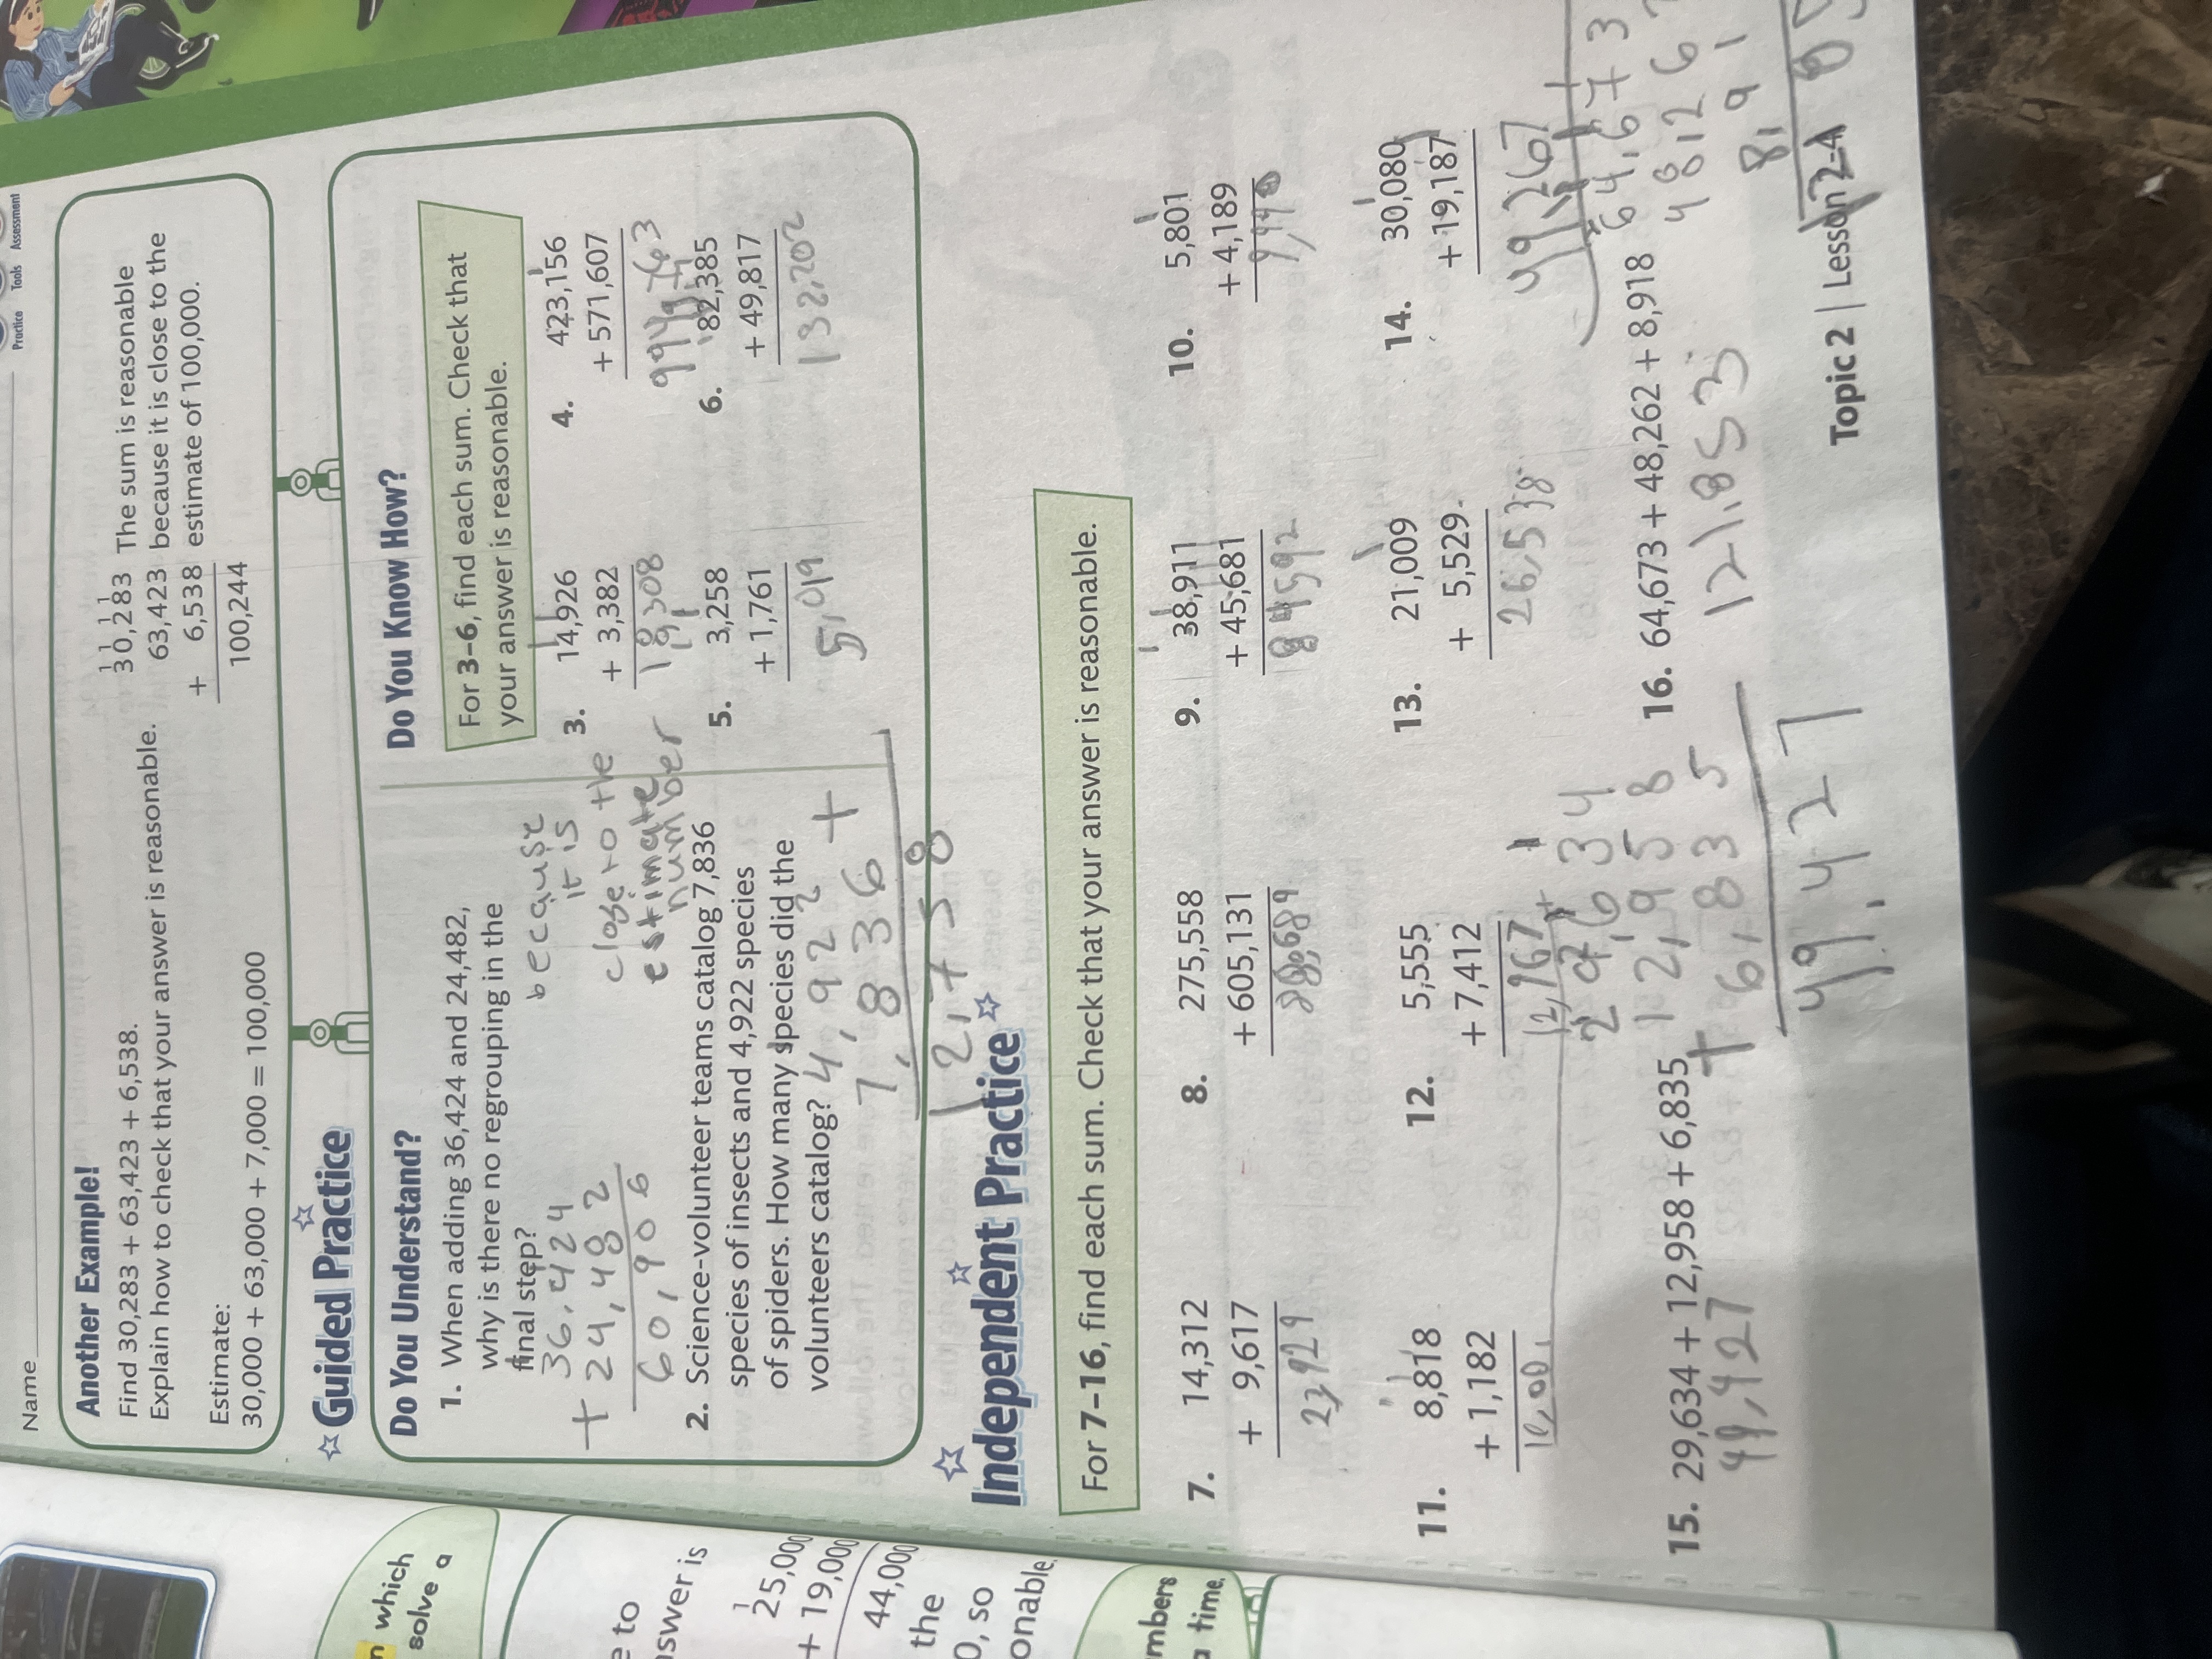 Name
Practice Tools Assessment
Another Example!
Find 30,283 + 63,423 + 6,538.
Explain how to check that your answer is reasonable.
Estimate:
30,000 + 63,000 + 7,000 = 100,000
1 1
30,283
63,423
+ 6,538
100,244
The sum is reasonable
because it is close to the
estimate of 100,000.
Guided Practice
Do You Understand?
1. When adding 36,424 and 24,482,
why is there no regrouping in the
final step?
because
it is
close to the
estimate
number
36,424
+ 24,482
60,906
2. Science-volunteer teams catalog 7,836
species of insects and 4,922 species
of spiders. How many species did the
volunteers catalog?
4,922
7,836 +
12,758
Do You Know How?
For 3–6, find each sum. Check that
your answer is reasonable.
3. 14,926
+ 3,382
18,308
4. 423,156
+ 571,607
994,763
5. 3,258
+ 1,761
5,019
6. 82,385
+ 49,817
132,202
Independent Practice
For 7–16, find each sum. Check that your answer is reasonable.
7. 14,312
+ 9,617
23,929
8. 275,558
+ 605,131
880,689
9. 38,911
+ 45,681
84592
10. 5,801
+ 4,189
11. 8,818
+ 1,182
12. 5,555
+ 7,412
12,967
13. 21,009
+ 5,529
26,538
14. 30,080
+ 19,187
49,267
15. 29,634 + 12,958 + 6,835
49,427
29,634
12,958
+ 6,835
49,427
16. 64,673 + 48,262 + 8,918
121,853
64,673
Topic 2 | Lesson 2-4
which
solve a
e to
nswer is
1
25,000
+ 19,000
44,000
the
0, so
onable.
mbers
a time.